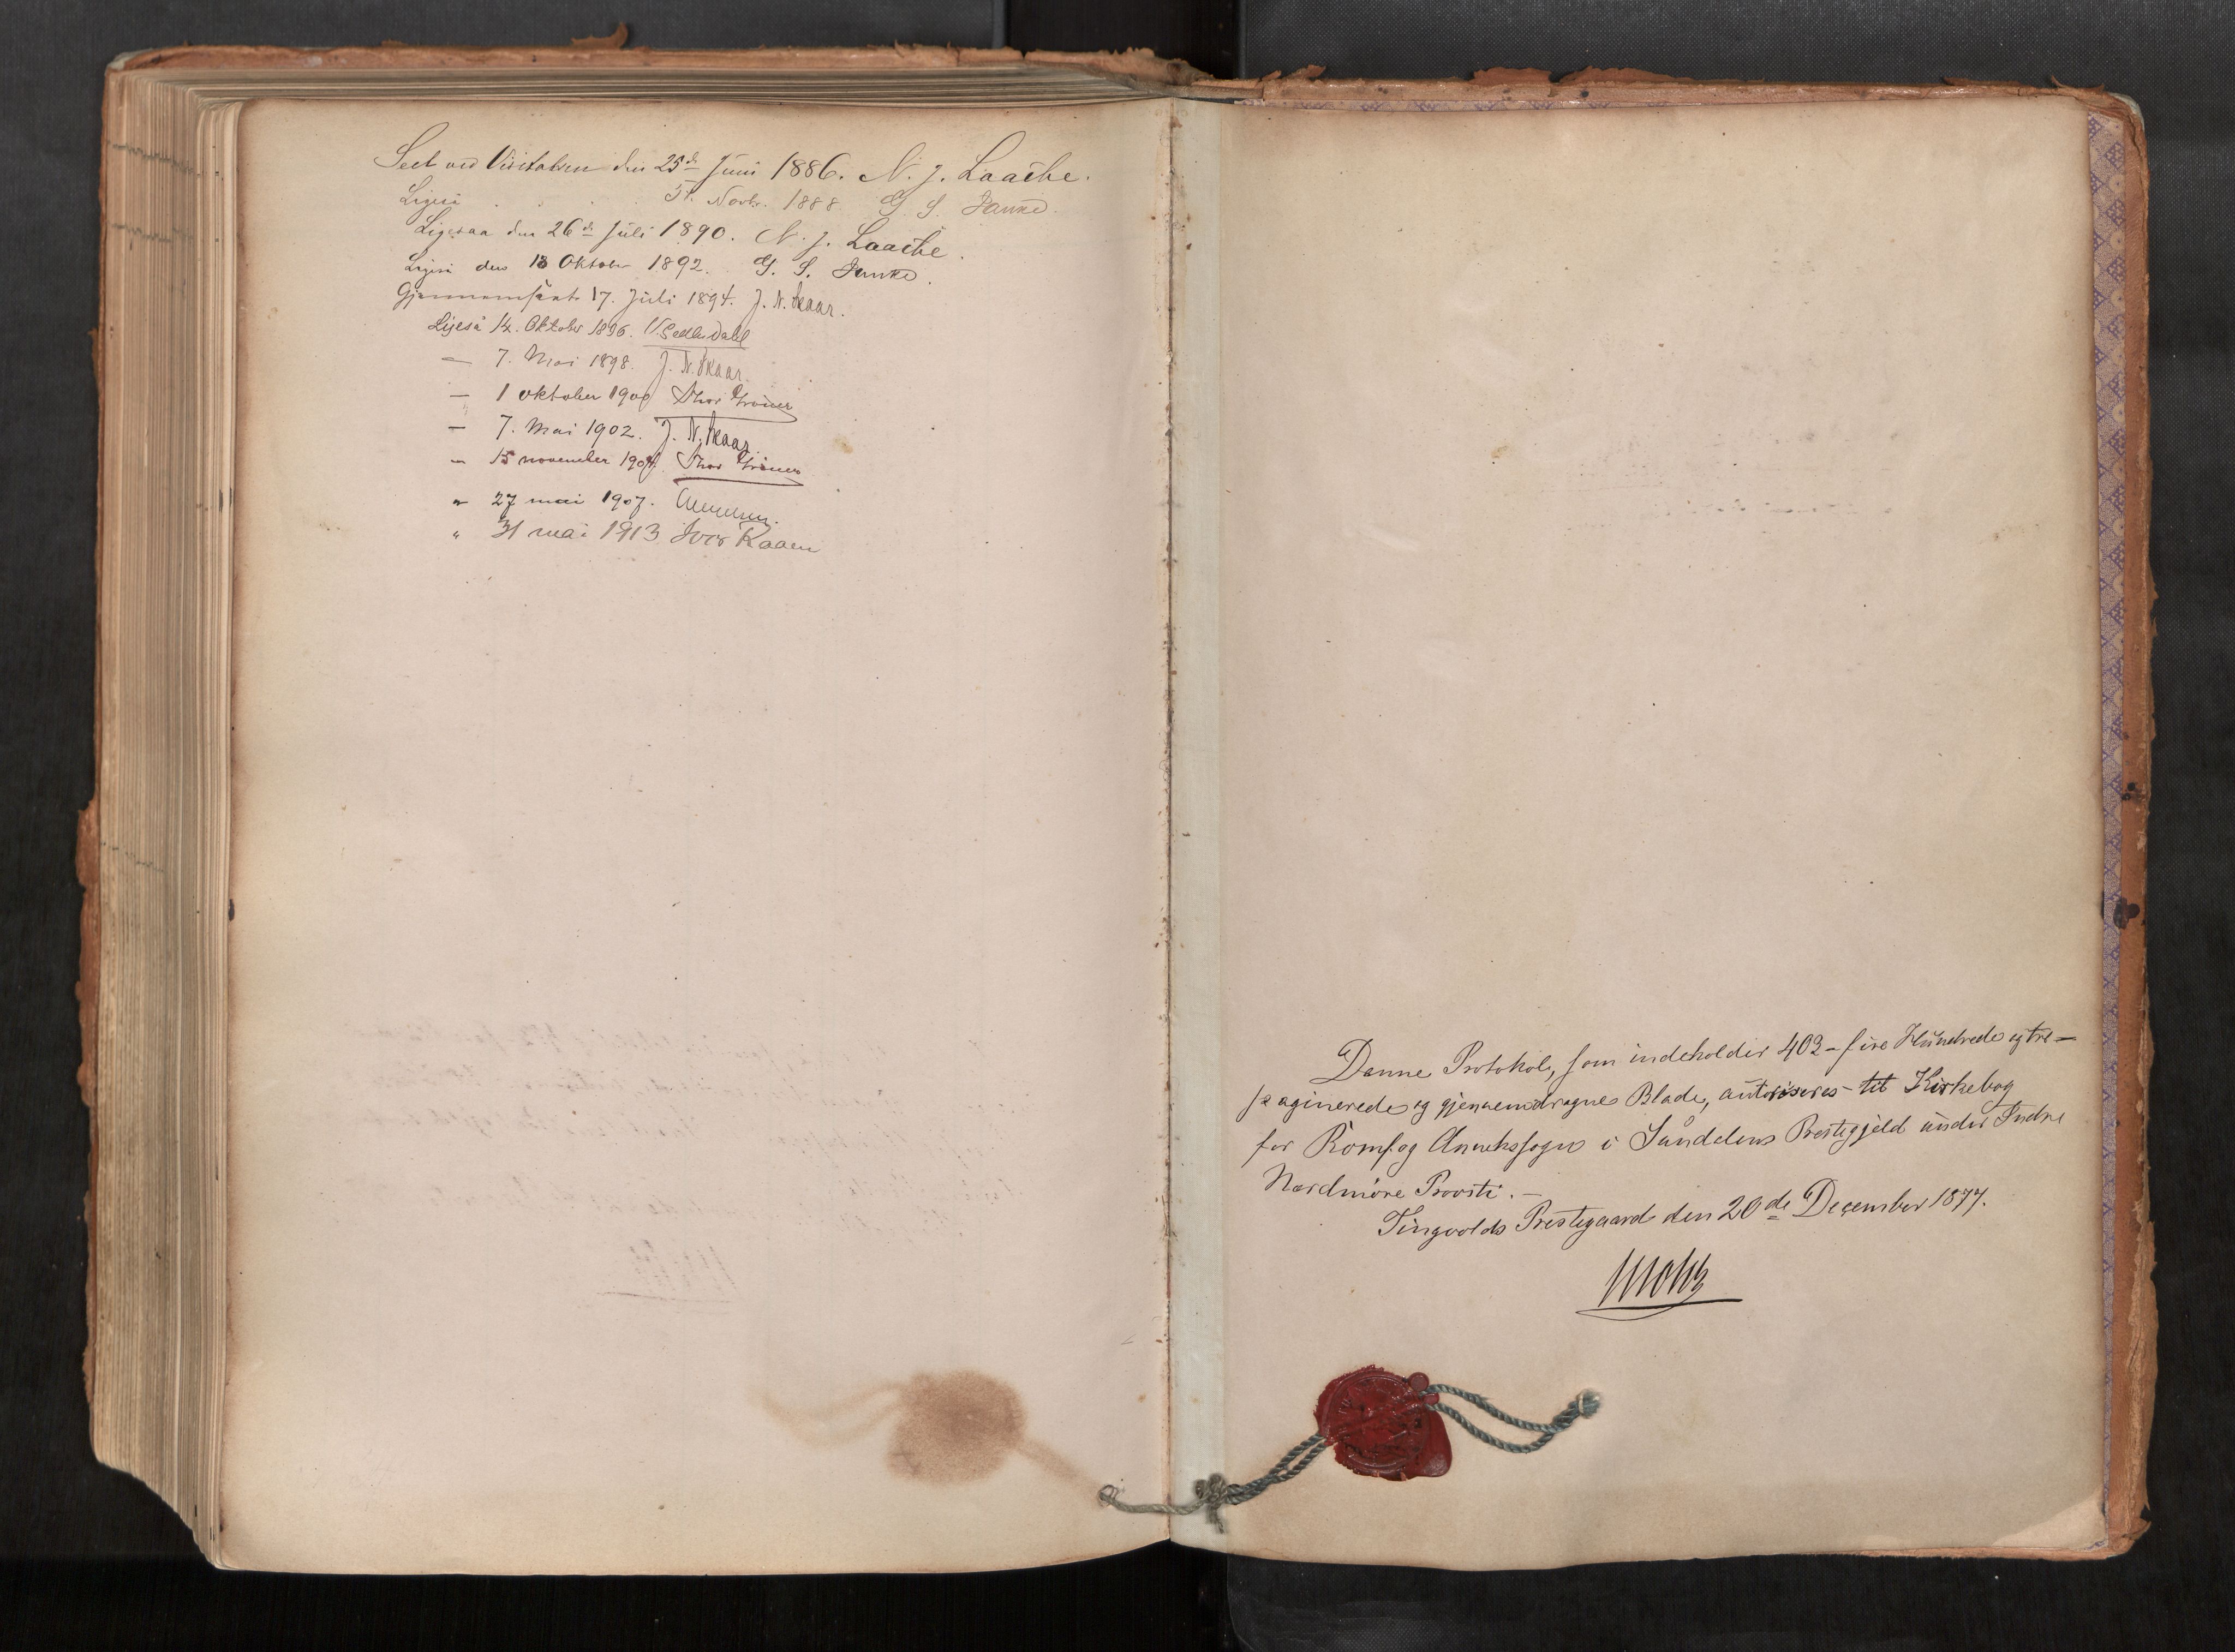 Seet ved Visitatsen den 25de Juni 1886. N. J. Laache.
Ligeså . . . Novbr. 1888 G. S.
Ligesaa den 26de Juli 1890. N. J. Laache.
Ligeså den 18 Oktober 1892. G. S.
Gjennemseet 17. Juli 1894. J. N. Skaar.
Ligeså 14. Oktober 1896.
— 7. Mai 1898. J. N. Skaar
— 1 oktober 1900 Thor Gröner
— 7. Mai 1902. J. N. Skaar
— 15 november 1904. Thor Gröner
" 27 mai 1907.
" 31 mai 1913 Ivar Raaen
Denne Protokol, som indeholder 403 - fire Hundrede og tre -
paginerede og gjennemdragne Blade, autoriseres til Kirkebog
for Romfog Annekssogn i Sundalens Prestegjeld under Indre
Nordmöre Provsti. —
Tingvolds Prestegaard den 20de December 1877.